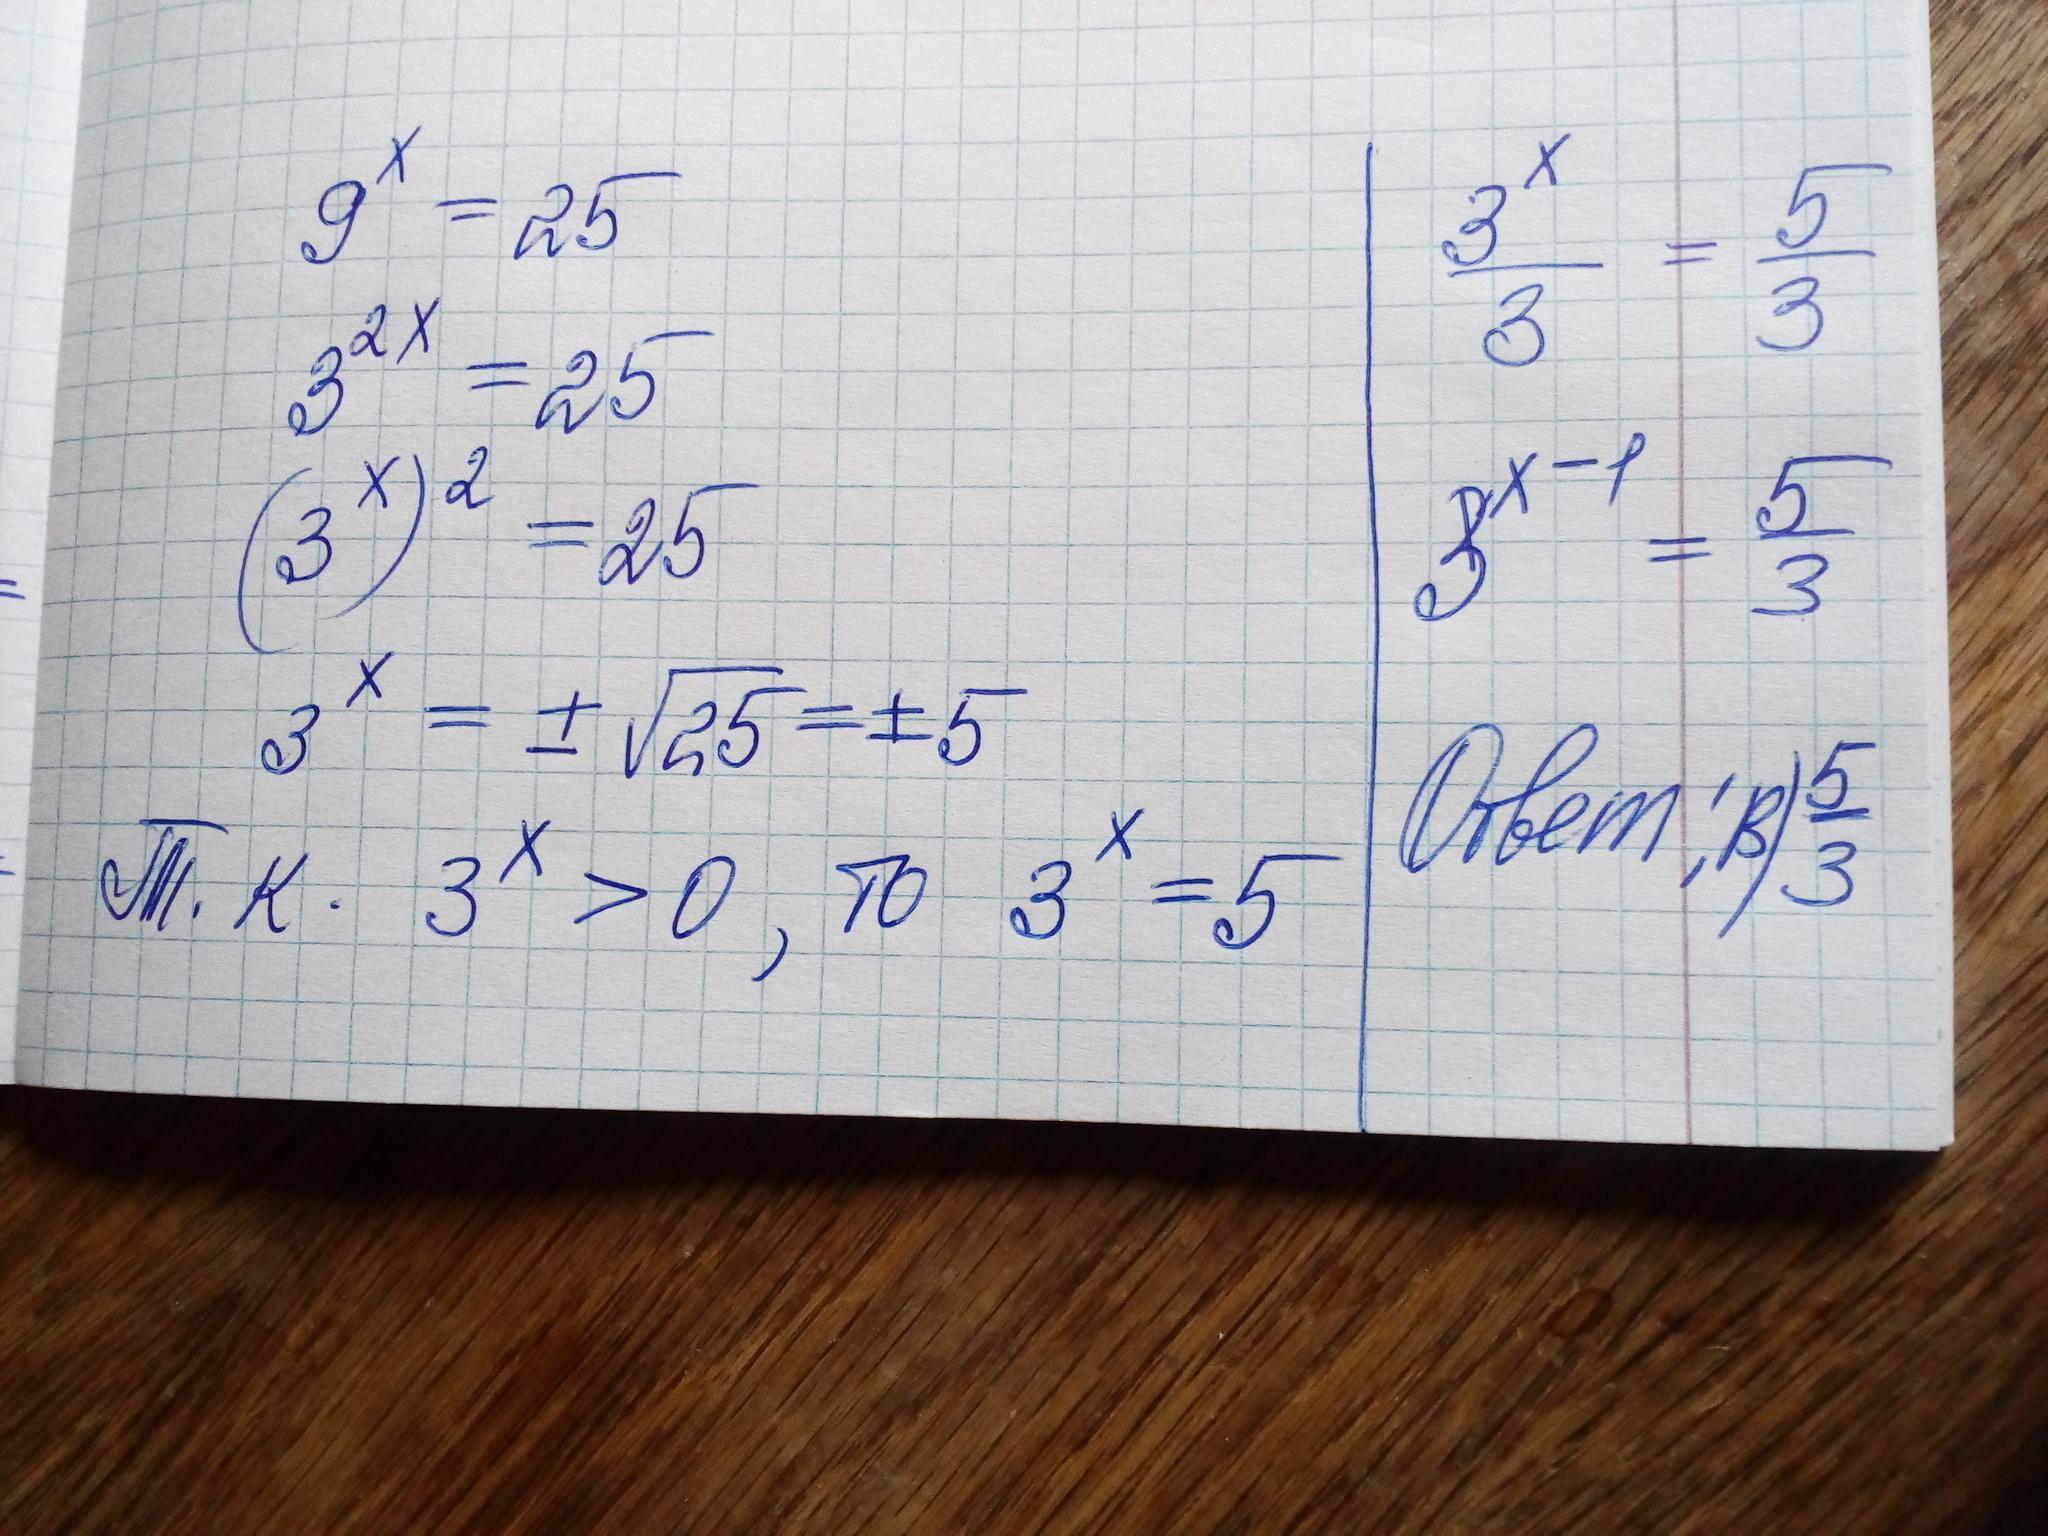 9^x = 25
3^{2x} = 25
(3^x)^2 = 25
3^x = ± √25 = ± 5
Т. к. 3^x > 0, то 3^x = 5
3^x/3 = 5/3
3^{x-1} = 5/3
Ответ: в) 5/3
=
=